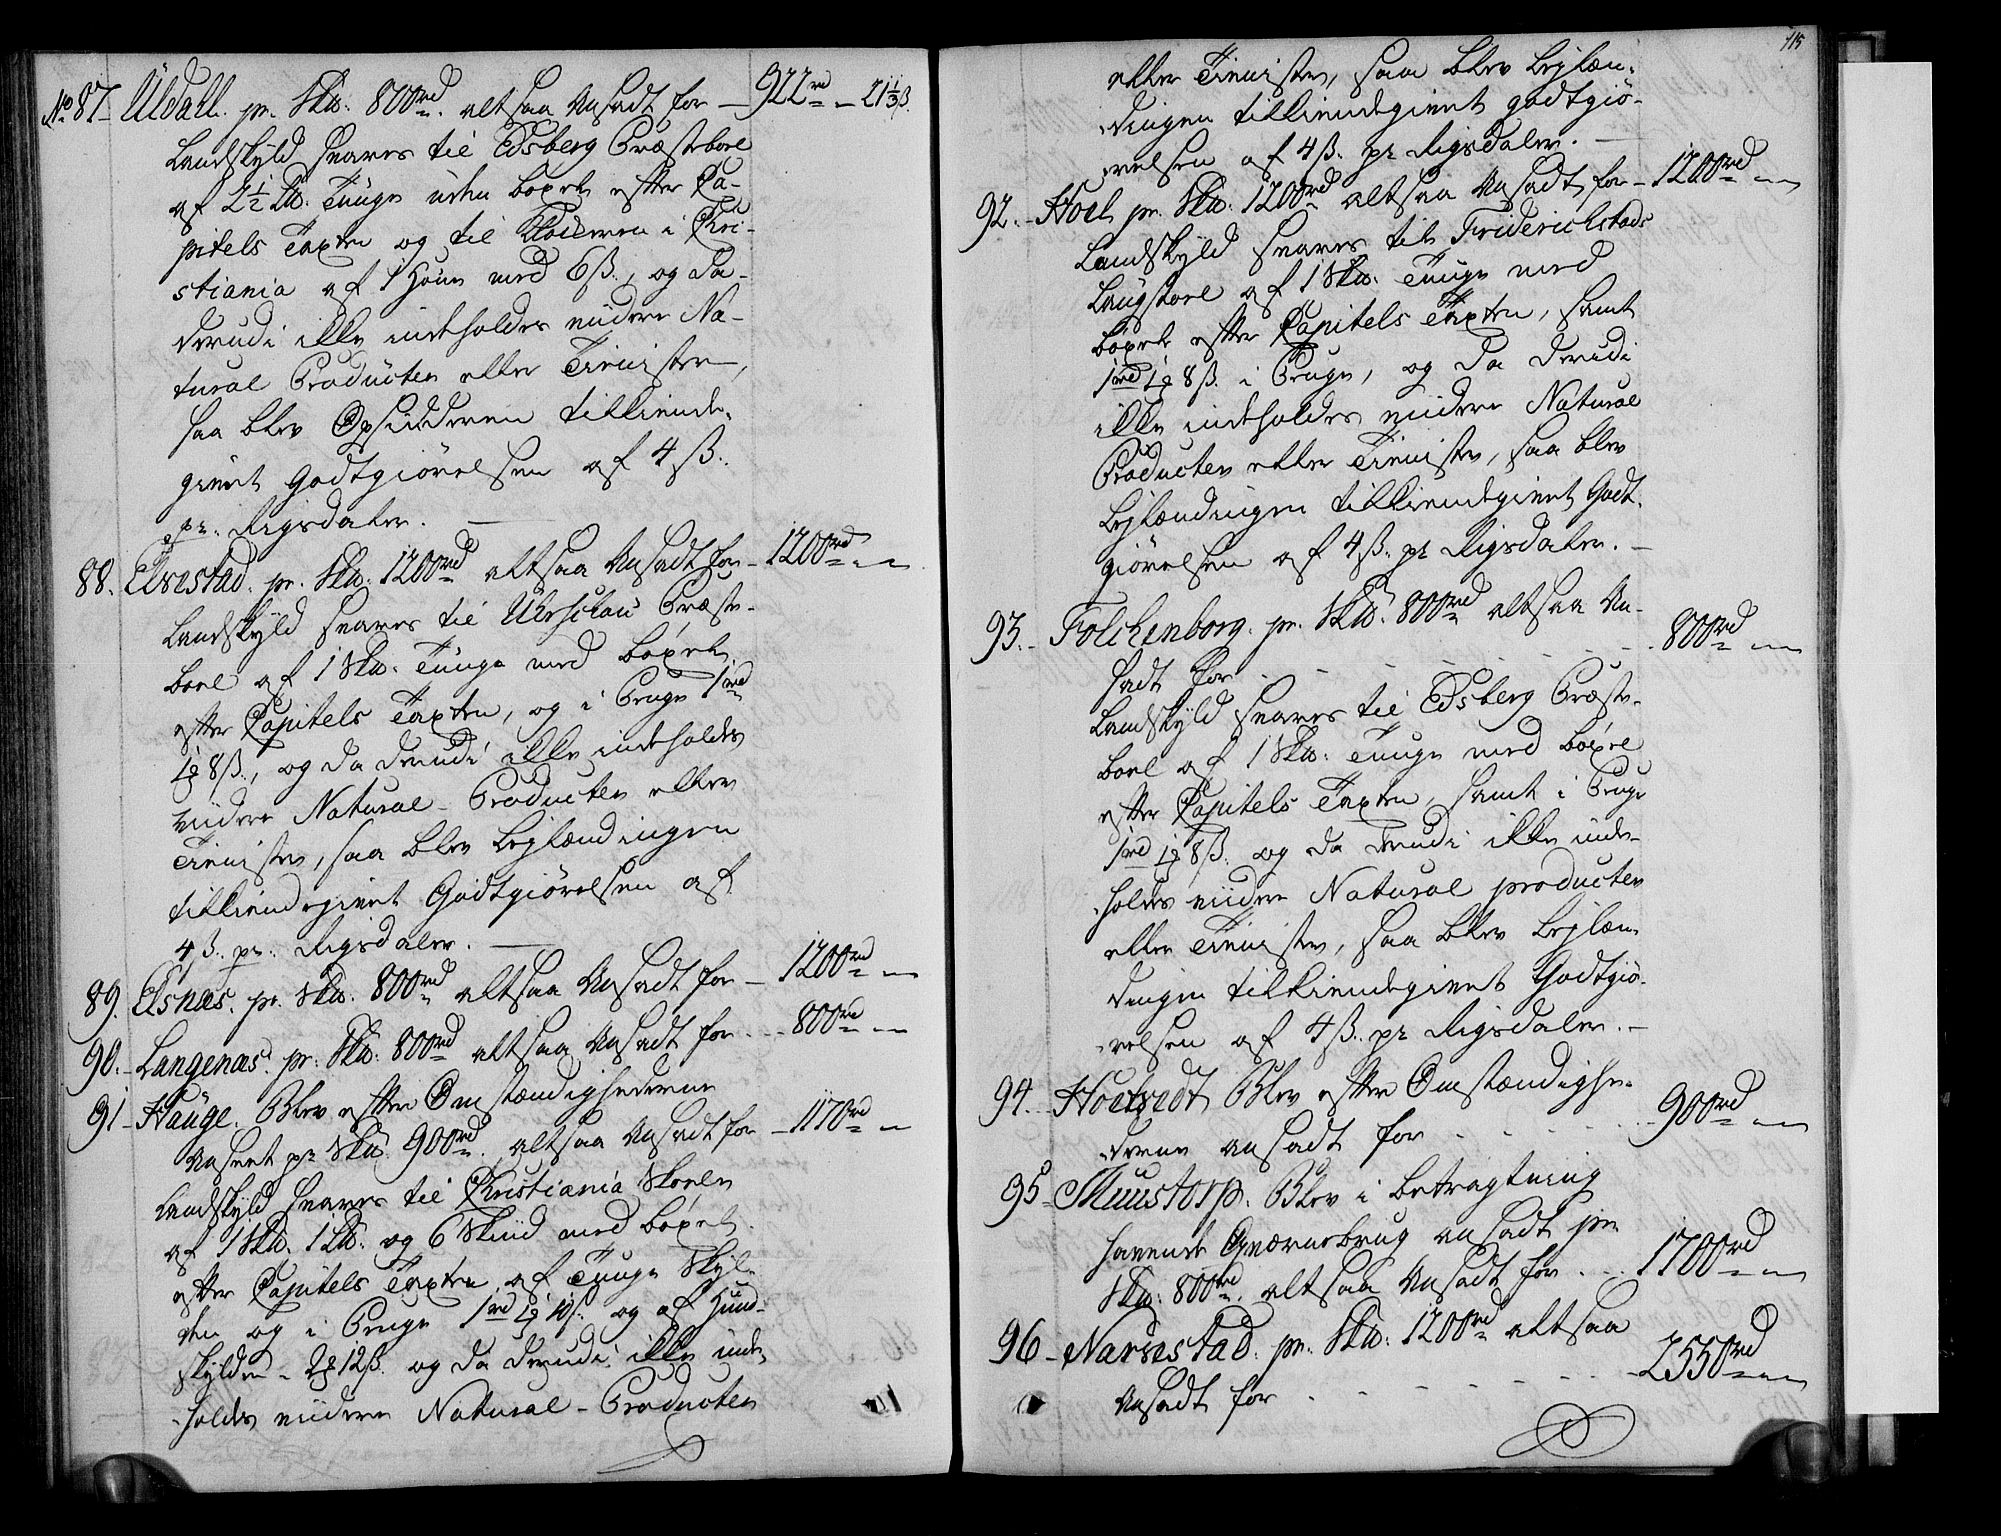 No 87. Uldahl. pr. Skd: 800rd. altsaa Ansadt for — 922rd - 21 1/3 ß.
Landskyld svares til Edsberg Præstebore
af 2 1/2 Lb. Tunge uden boxel efter Ca-
pitels Taxten og til Klosteren i Chri-
stiania af 1 Houn med 6 ß., og da
derudi ikke indeholdes viidere Na-
tural Producter eller Tienister,
saa blev Opsidderen tilkiende-
givet Godtgiørelsen af 4 ß.
pr. Rigsdaler.
88. Elvestad. pr. Skd: 1200rd altsaa Ansadt for — 1200rd
Landskyld svares til Præste-
boel af 1 Skd. Tunge med boxel
efter Capitels Taxten, og i Penge 1rd
1 8 ß., og da derudi ikke indeholdes
viidere Natural-Producter eller
Tieniste, saa blev Lejlændingen
tilkiendegivet Godtgiørelsen af
4 ß. pr. Rigsdaler.
89. Elsnæs. pr. Skd: 800rd altsaa Ansadt for — 1200rd
90. Langenæs. pr. Skd: 800rd altsaa Ansadt for — 800rd
91. Hauge. Blev efter Omstændighederne
Anseet pr Skd. 900rd. altsaa Ansadt for — 1170rd
Landskyld svares til Christiania Skoele
af 1 Skd. 1 Lb. og 6 Skind med boxel
efter Capitels Taxten af Tunge Skyl-
den og i Penge 1rd 1 10 ß. og af Hund-
skylden - 2 12 ß. og da derudi ikke inde-
holdes viidere Natural-Producter
115
eller Tieniste, saa blev Lejlæn-
dingen tilkiendegivet godtgiø-
relsen af 4 ß. pr Rigsdaler. —
92. Hoel pr. Skd. 1200rd altsaa Ansadt for — 1200rd
Landskyld svares til Friderichstads
af 1 Skd. Tunge med
boxel efter Capitels Taxten, samt
1rd 1 8 ß. i Penge, og da derudi
ikke indeholdes viidere Natural
Producter eller Tieniste, saa blev
Lejlændingen tilkiendegivet Godt-
giørelsen af 4 ß. pr Rigsdaler. —
93. Folchenborg. pr. Skd. 800rd altsaa An-
sadt for — 800rd
Landskyld svares til Edsberg Præste-
boel af 1 Skd: Tunge med boxel
efter Capitels Taxten, samt i Penge
1rd 1 8 ß. og da derudi ikke inde-
holdes viidere Natural producter
eller Tieniste, saa blev Lejlæn-
dingen tilkiendegivet Godtgiø-
relsen af 4 ß. pr Rigsdaler. —
94. Blev efter Omstændighe-
derne ansadt for — 900rd
95. Muustorp. Blev i betragtning
havende Qværnebrug ansadt pr
Skd: 800rd. altsaa Ansadt for — 1700rd
96. Narvestad. pr. Skd: 1200rd altsaa
Ansadt for — 2550rd